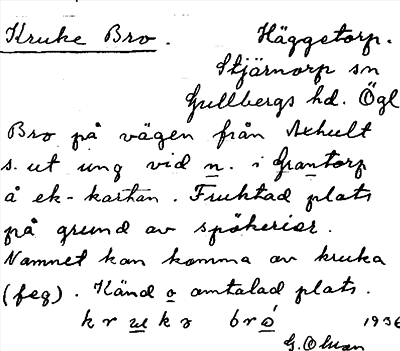 Kruke Bro. Häggetorp.
Stjärnorp sn
Gullbergs hd. Ögl
Bro på vägen från Axhult
s. ut ung vid n. i Grantorp
å ek-kartan. Fruktad plats
på grund av spökerier.
Namnet kan komma av kruka
(feg). Känd o omtalad plats.
bró 1936
G. Olson